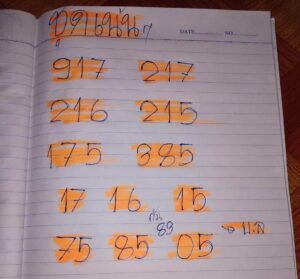 ชุดเน้นๆ
DATE NO.
917 217
216 215
175 385
17 16 15
กัน 89
75 85 05